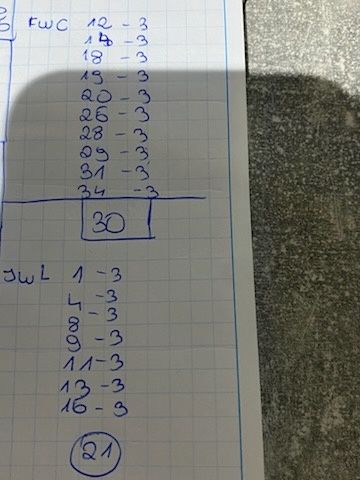 FWC 12 - 3
14 - 3
18 - 3
19 - 3
20 - 3
26 - 3
28 - 3
29 - 3
31 - 3
34 - 3
30
JWL 1 - 3
4 - 3
8 - 3
9 - 3
11 - 3
13 - 3
16 - 3
21